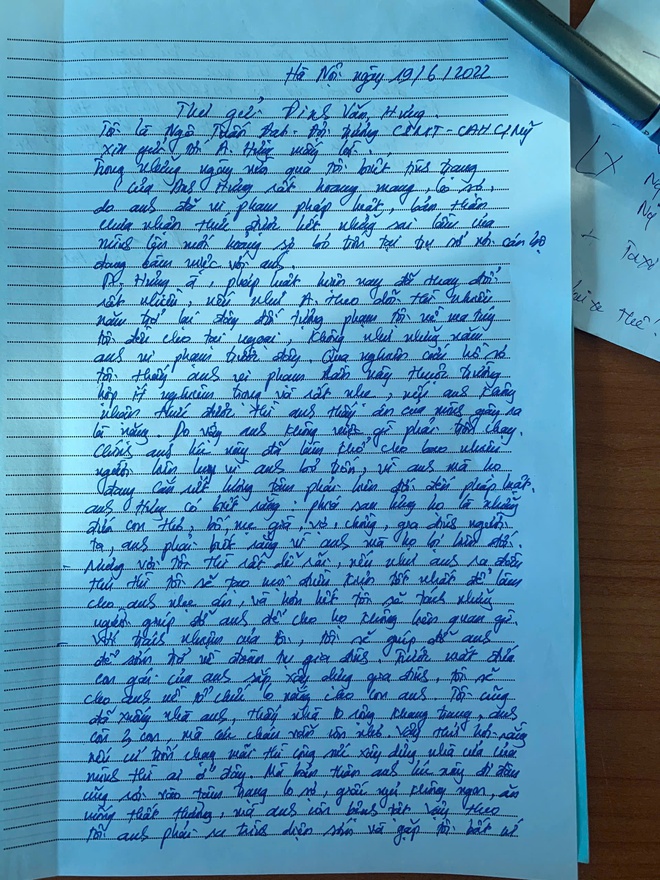 Hà Nội ngày 19/6/2022
Thư gửi Đinh Văn Hưng.
Tôi là Ngô Tuấn Đạt - Đội trưởng CSMT - CAH
xin gửi tới A. Hưng mấy lời.
Trong những ngày vừa qua tôi biết tâm trạng
của anh Hưng rất hoang mang, lo sợ,
do anh đã vi phạm pháp luật, bản thân
chưa nhận thức được hết những sai lầm của
mình lên mới hoang sợ bỏ trốn tại trụ sở nơi cán bộ
đang làm việc với anh.
A. Hưng ạ, pháp luật hiện nay đã thay đổi
rất nhiều, nếu như A. theo dõi thì nhiều
năm trở lại đây đối tượng phạm tội về ma túy
tôi đều cho tại ngoại, không như những năm
anh vi phạm trước đây. Qua nghiên cứu hồ sơ
tôi thấy anh vi phạm lần này thuộc trường
hợp ít nghiêm trọng và rất nhẹ, nếu anh không
nhận thức được thì anh thấy án của mình gây ra
là nặng. Do vậy anh không việc gì phải trốn chạy.
Chính anh lúc này đã làm khổ cho bao nhiêu
người liên lụy vì anh bỏ trốn, vì anh mà họ
đang cắn rứt lương tâm phải liên đới đến pháp luật.
anh Hưng có biết rằng phía sau lưng họ là những
đứa con thơ, bố mẹ già, vợ, chồng, gia đình người
ta, anh phải biết rằng vì anh mà họ bị liên đới.
- Nhưng với tôi thì rất dễ rãi, nếu như anh ra đầu
thú thì tôi sẽ tạo mọi điều kiện tốt nhất để làm
cho anh nhẹ án, và hơn hết tôi sẽ tách những
người giúp đỡ anh để cho họ không liên quan gì.
- Với trách nhiệm của tôi, tôi sẽ giúp đỡ anh
để sớm trở về đoàn tụ gia đình. Trước mắt đứa
con gái của anh sắp xây dựng gia đình, tôi sẽ
cho anh về tổ chức lo lắng cho con anh. Tôi cũng
đã xuống nhà anh, thấy nhà rộng khang trang, anh
còn 3 con, mà các cháu vẫn còn nhỏ. Vậy thử hỏi rằng
nếu cứ trốn chạy mãi thì công sức xây dựng nhà cửa của
mình thì ai ở đây. Mà bản thân anh lúc này đi đâu
cũng rơi vào tâm trạng lo sợ, giấc ngủ không ngon, ăn
uống thất thường, mà anh còn bệnh tật vậy theo
tôi anh phải ra trình diện sớm và gặp tôi bất kì